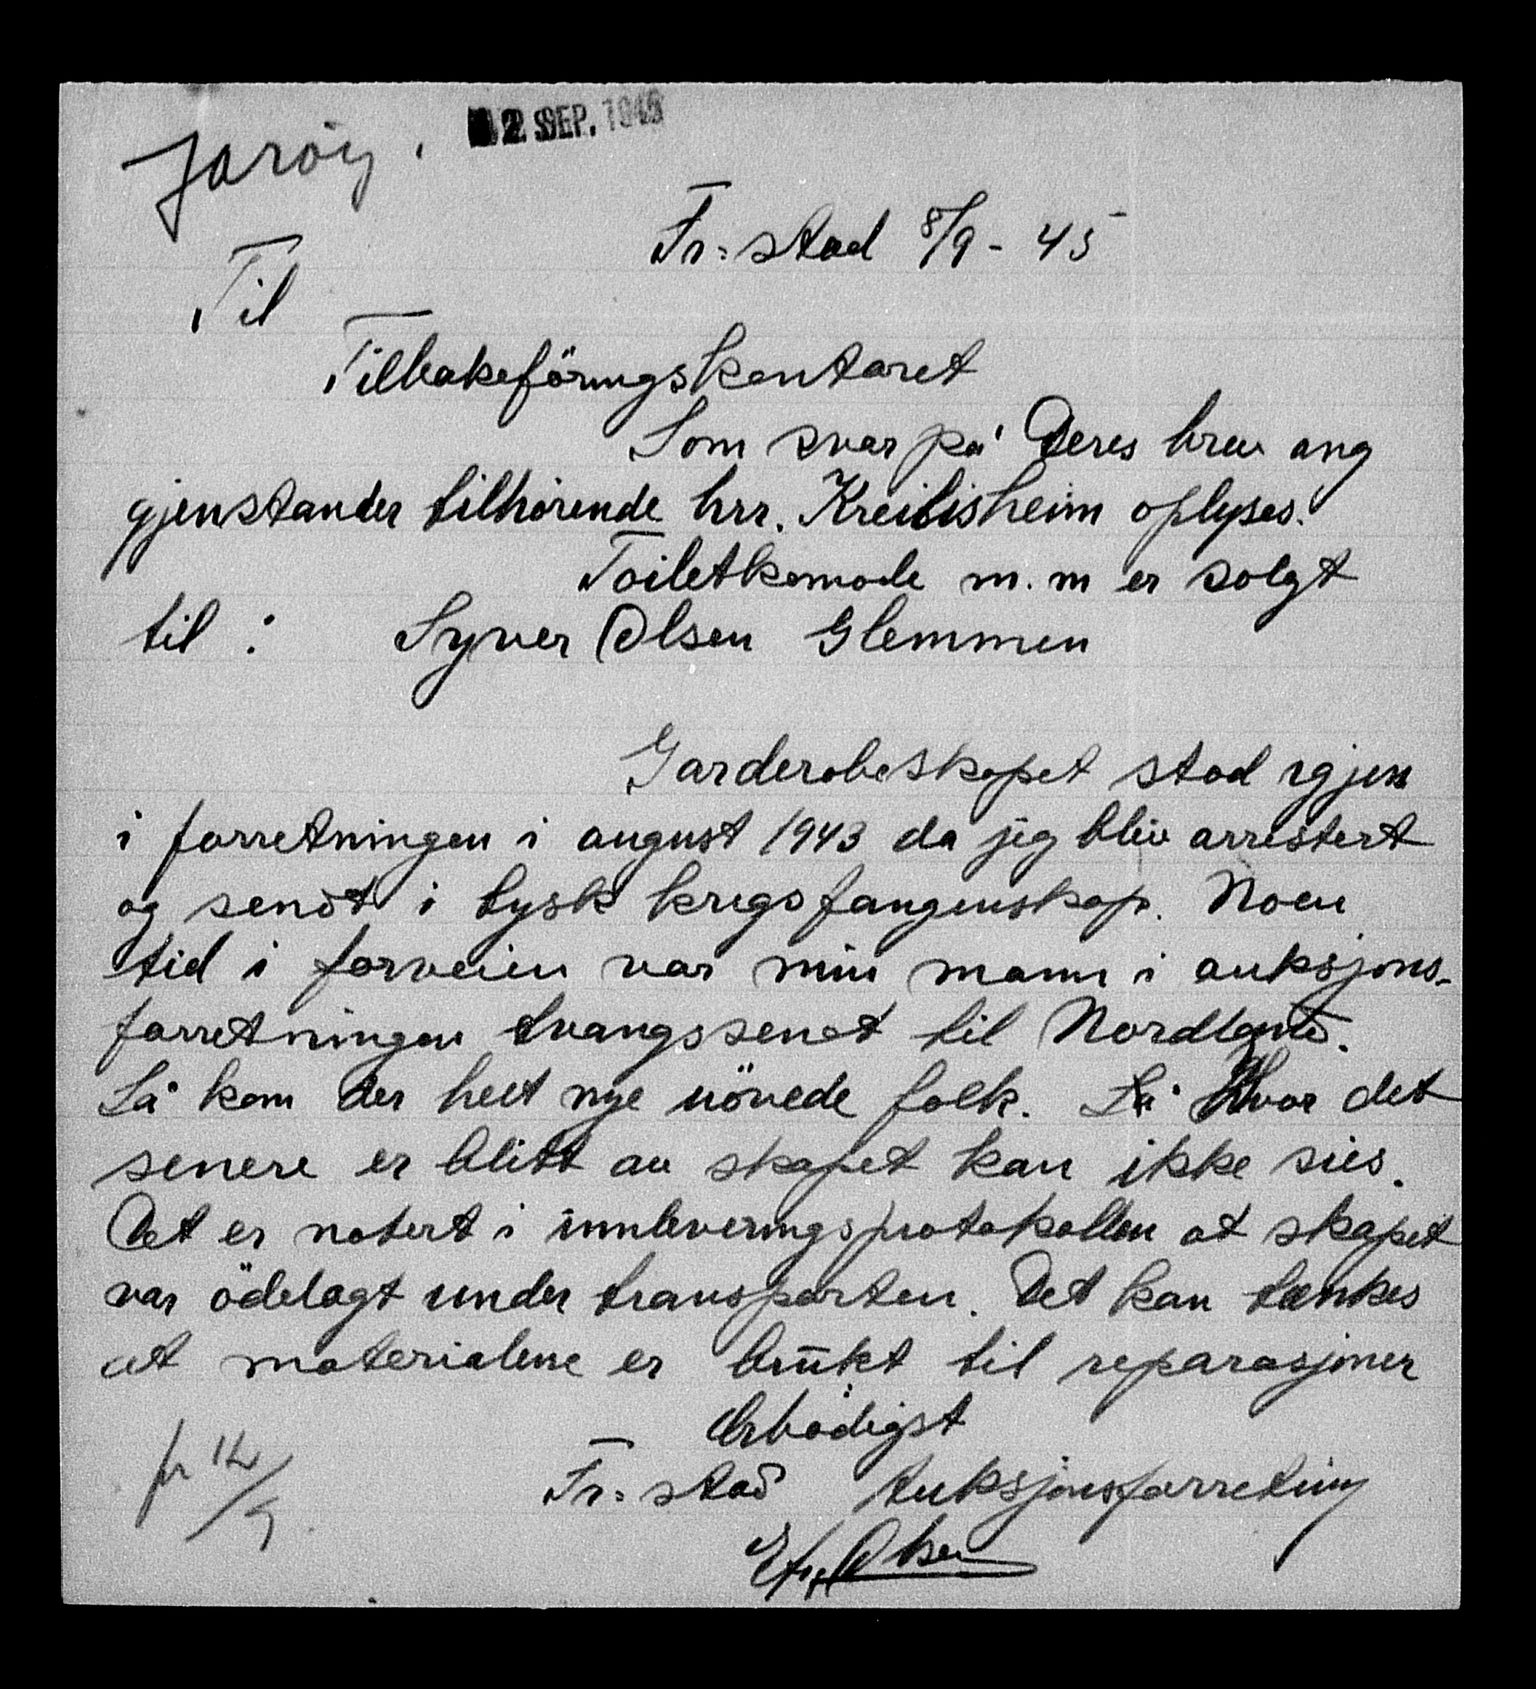 Jarøy.
12 SEP. 1945
Fr:stad 8/9-45
Til
Tilbakeföringskontoret
Som svar på Deres brev ang
gjenstander tilhörende hrr. Kreilisheim oplyses.
Toiletkomode m.m er solgt
til : Syver Olsen Glemmen
Garderobeskapet stod igjen
i forretningen i august 1943 da jeg blev arrestert
og sendt i tysk krigsfangenskap. Noen
tid i forveien var min mann i auksjons-
forretningen tvangssendt til Nordland.
Så kom der helt nye uövede folk. Hvor det
senere er blitt av skapet kan ikke sies.
Det er notert i innleveringsprotokollen at skapet
var ödelagt under transporten. Det kan tænkes
at materialene er brukt til reparasjoner
Ærbödigst
Fr:stad Auksjonsforretning
Olsen
12/9